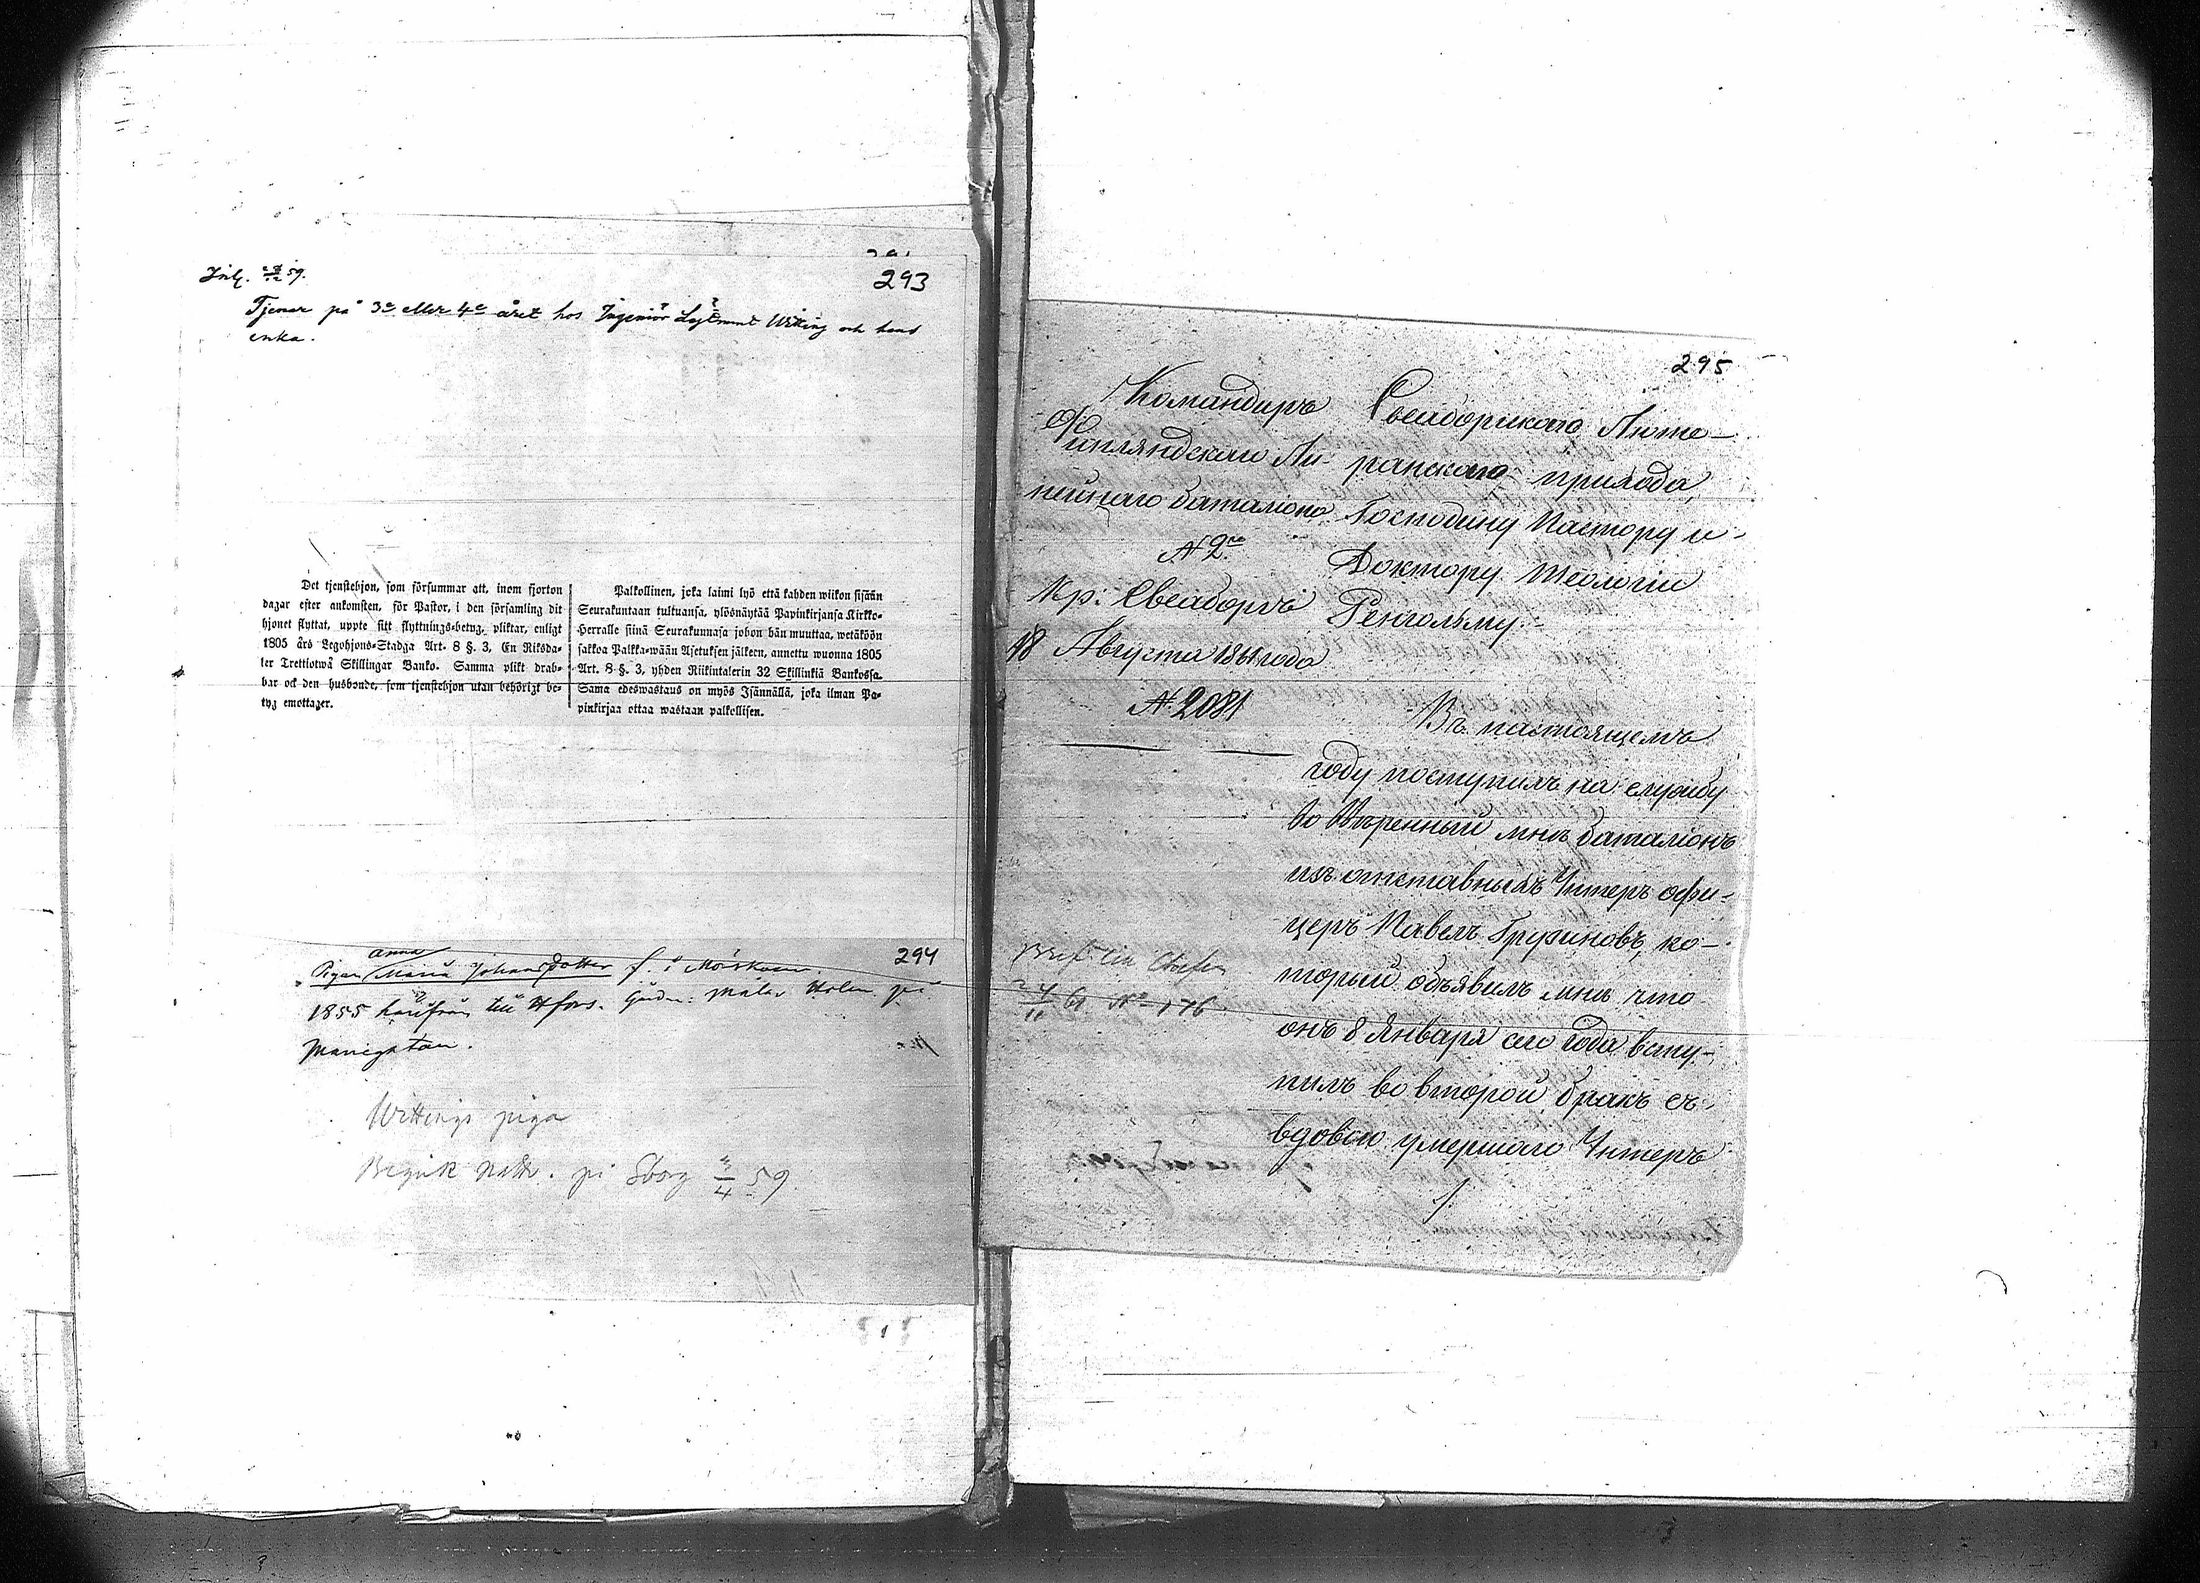 293
Inl. 59.
Tjenar på 3e eller 4e året hos Ingeniör Löjtnant Witting och hans
enka.
Det tjenstehjon, som försummar att, inom fjorton
dagar efter ankomsten, för Pastor, i den församling dit
hjonet flyttat, uppte sitt flyttnings-betyg, pliktar, enligt
1805 års Legohjons-Stadga Art. 8 §. 3, En Riksda-
ler Trettiotwå Skillingar Banko. Samma plikt drab-
bar ock den husbonde, som tjenstehjon utan behörigt be-
tyg emottager.
Palkollinen, joka laimi lyö että kahden wiikon sisään
Seurakuntaan tultuansa, ylösnäytää Papinkirjansa Kirkko-
Herralle siinä Seurakunnasa johon hän muuttaa, wetäköön
sakkoa Palkka-wään Asetuksen jälkeen, annettu wuonna 1805
Art. 8 §. 3, yhden Riikintalerin 32 Skillinkiä Bankossa.
Sama edeswastaus on myös Isännällä, joka ilman Pa-
pinkirjaa ottaa wastaan palkollisen.
294
anna
Pigan Maria Johansdotter f. i Mörskom.
1855 härifrån till Hfors. Gudm: Målar Holm på
Mariegatan.
Wittings piga
Begick nattv. på Sborg 3/4 59.
295
Командиръ
Финляндскаго Ли-
нейнаго баталіона
№ 2го
Кр: Свеаборгъ
18 Августа 1861 года
№ 2081
Свеаборгскаго Люте-
ранскаго прихода,
Господину Пастору и
Доктору Теологіи
Ренгольму.
Въ настоящемъ
году поступилъ на службу
во ввѣренный мнѣ баталіонъ
изъ отставныхъ Унтеръ офи-
церъ Павелъ Грузиновъ, ко-
торый объявилъ мнѣ что
онъ 8 Января сего года всту-
пилъ во второй бракъ съ
вдовою умершаго Унтеръ
Bref till Chefen
24/11 61 No 176